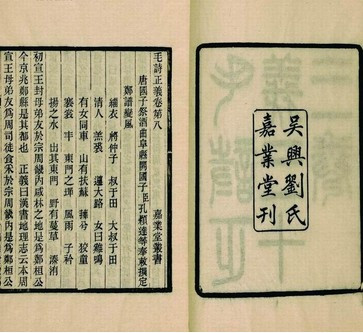 吳興劉氏
嘉業堂刊
毛詩正義卷第八　嘉業堂叢書
唐國子祭酒曲阜縣開國子臣孔穎達等奉敕撰定
鄭譜變風
緇衣　將仲子　叔于田　大叔于田
清人　羔裘　遵大路　女曰雞鳴
有女同車　山有扶蘇　蘀兮　狡童
褰裳　丰　東門之墠　風雨　子衿
揚之水　出其東門　野有蔓草　溱洧
初宣王封母弟友於宗周畿內咸林之地是爲鄭桓公
今京兆鄭縣是其都也　正義曰漢書地理志云本周
宣王母弟友爲周司徒食采於宗周畿內是爲鄭桓公